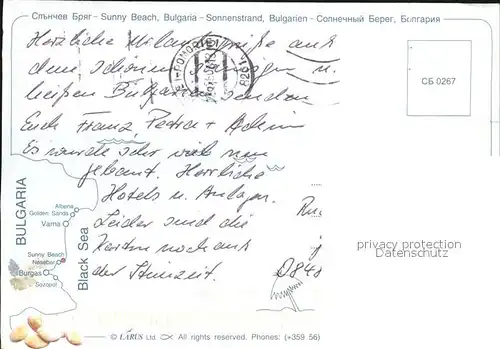 Слънчев Бряг - Sunny Beach, Bulgaria - Sonnenstrand, Bulgarien - Солнечный Берег, Болгария
Herzliche Urlaubsgrüße aus
dem schönen, sonnigen u.
heißen Bulgarien senden
Euch Franz, Petra + Achim
Es wurde sehr viel neu
gebaut. Herrliche
Hotels u. Anlagen.
Leider sind die
Karten noch aus
der Steinzeit.
СБ 0267
privacy protection
Datenschutz
BULGARIA
Black Sea
Albena
Golden Sands
Varna
Sunny Beach
Nesebar
Burgas
Sozopol
© LARUS Ltd. All rights reserved. Phones: (+359 56)